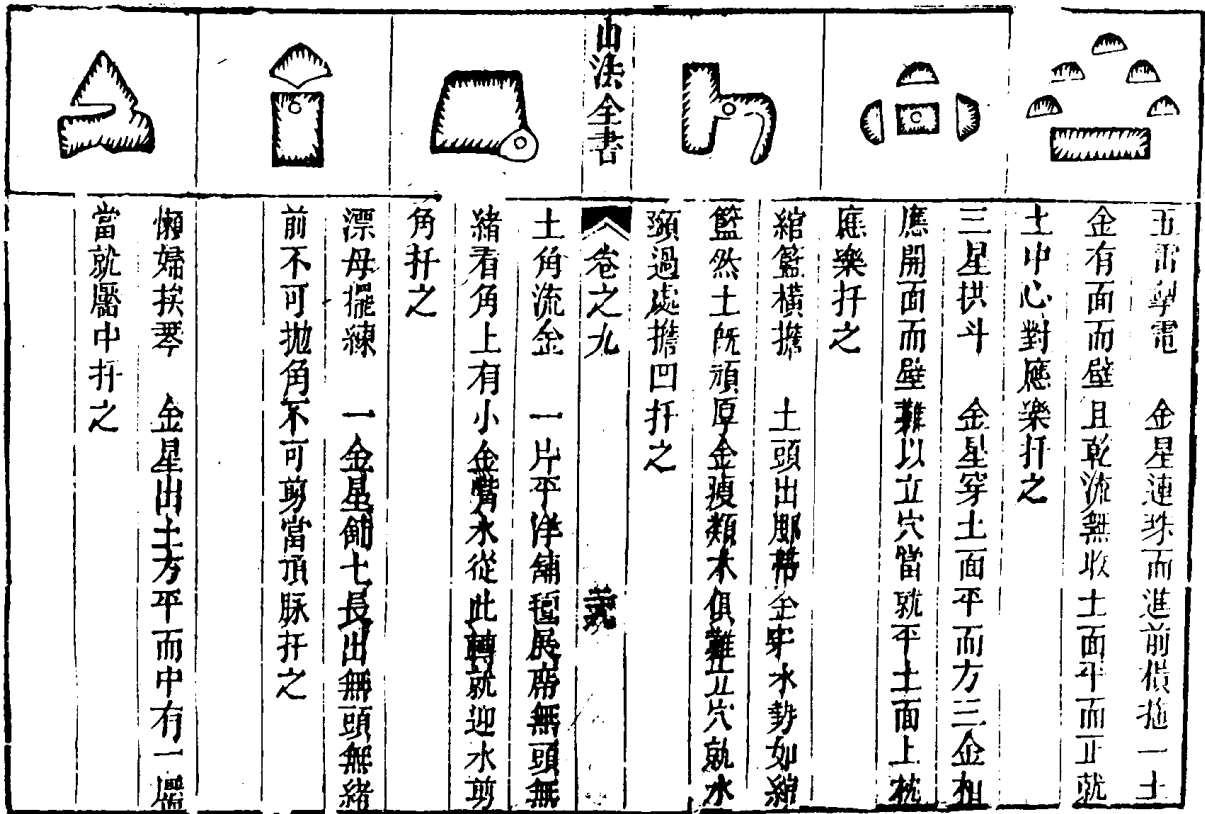 五雷掣電　金星連珠而進前橫拖一土
金有面而壁且乾流無收土面平而正就
土中心對應樂扦之
三星拱斗　金星穿土面平而方三金相
應開面而壁難以立穴當就平土面上枕
應樂扦之
綰籃橫擔　土頭出腳帶金牢水勢如綰
籃然土旣頑厚金瘦類木俱難立穴就水
頸過處擔凹扦之
山法全書
卷之九
土角流金　一片平洋舖氊展席無頭無
緒看角上有小金嘴水從此轉就迎水剪
角扦之
漂母擺練　一金星餉七長出無頭無緒
前不可拋角不可剪當頂脉扦之
懶婦挨琴　金星出土方平而中有一靨
當就靨中扦之